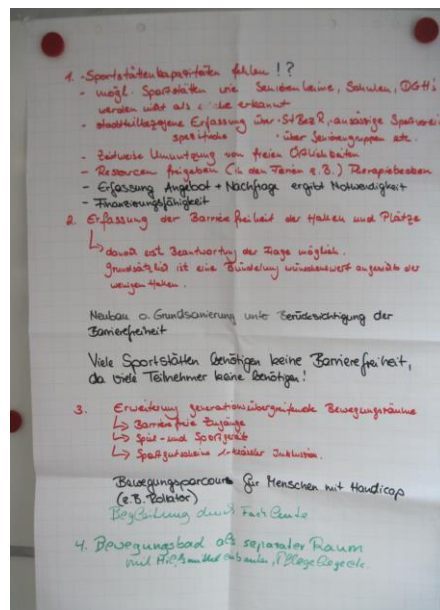 1. - Sportstättenkapazitäten fehlen !?
- mögl. Sportstätten wie Seniorenheime, Schulen, DGH's
werden nicht als erkannt
- stadtteilbezogene Erfassung über StBezR, ansässige Sportverei
spezifische · über Seniorengruppen etc.
- Zeitweise Umnutzung von freien Örtlichkeiten
- Ressourcen freigeben (in den Ferien z.B.) Therapiebecken
- Erfassung Angebot + Nachfrage ergibt Notwendigkeit
- Finanzierungsfähigkeit
2. Erfassung der Barrierefreiheit der Hallen und Plätze
↳ danach erst Beantwortung der Frage möglich.
Grundsätzlich ist eine Bündelung wünschenswert angesichts der
wenigen Hallen.
Neubau o. Grundsanierung unter Berücksichtigung der
Barrierefreiheit
Viele Sportstätten benötigen keine Barrierefreiheit,
da viele Teilnehmer keine benötigen!
3. Erweiterung generationsübergreifende Bewegungsräume
↳ Barrierefreie Zugänge
↳ Spiel- und Sportgerät
↳ Sportgutscheine Inklusion.
Bewegungsparcours für Menschen mit Handicap
(z.B. Rollator)
Begleitung durch Fachleute
4. Bewegungsbad als separater Raum
mit Hilfsmittel einbauten, Pflegeliege etc.